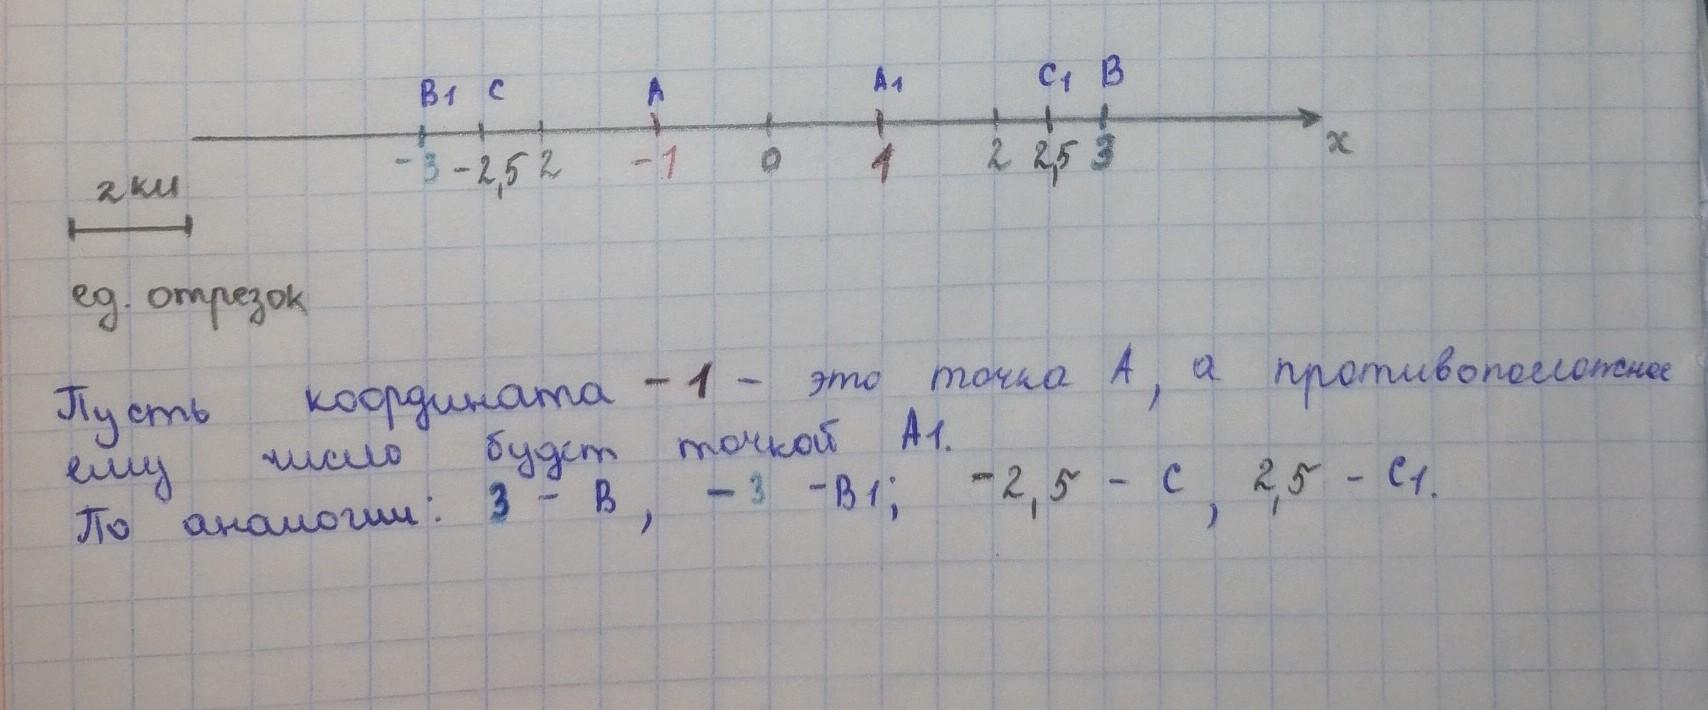 B1 C A A1 C1 B
-3 -2,5 2 -1 0 1 2 2,5 3 x
2 кл
ед. отрезок
Пусть координата -1 - это точка A, а противоположное
ему число будет точкой A1.
По аналогии: 3 - B, -3 -B1; -2,5 - C, 2,5 - C1.